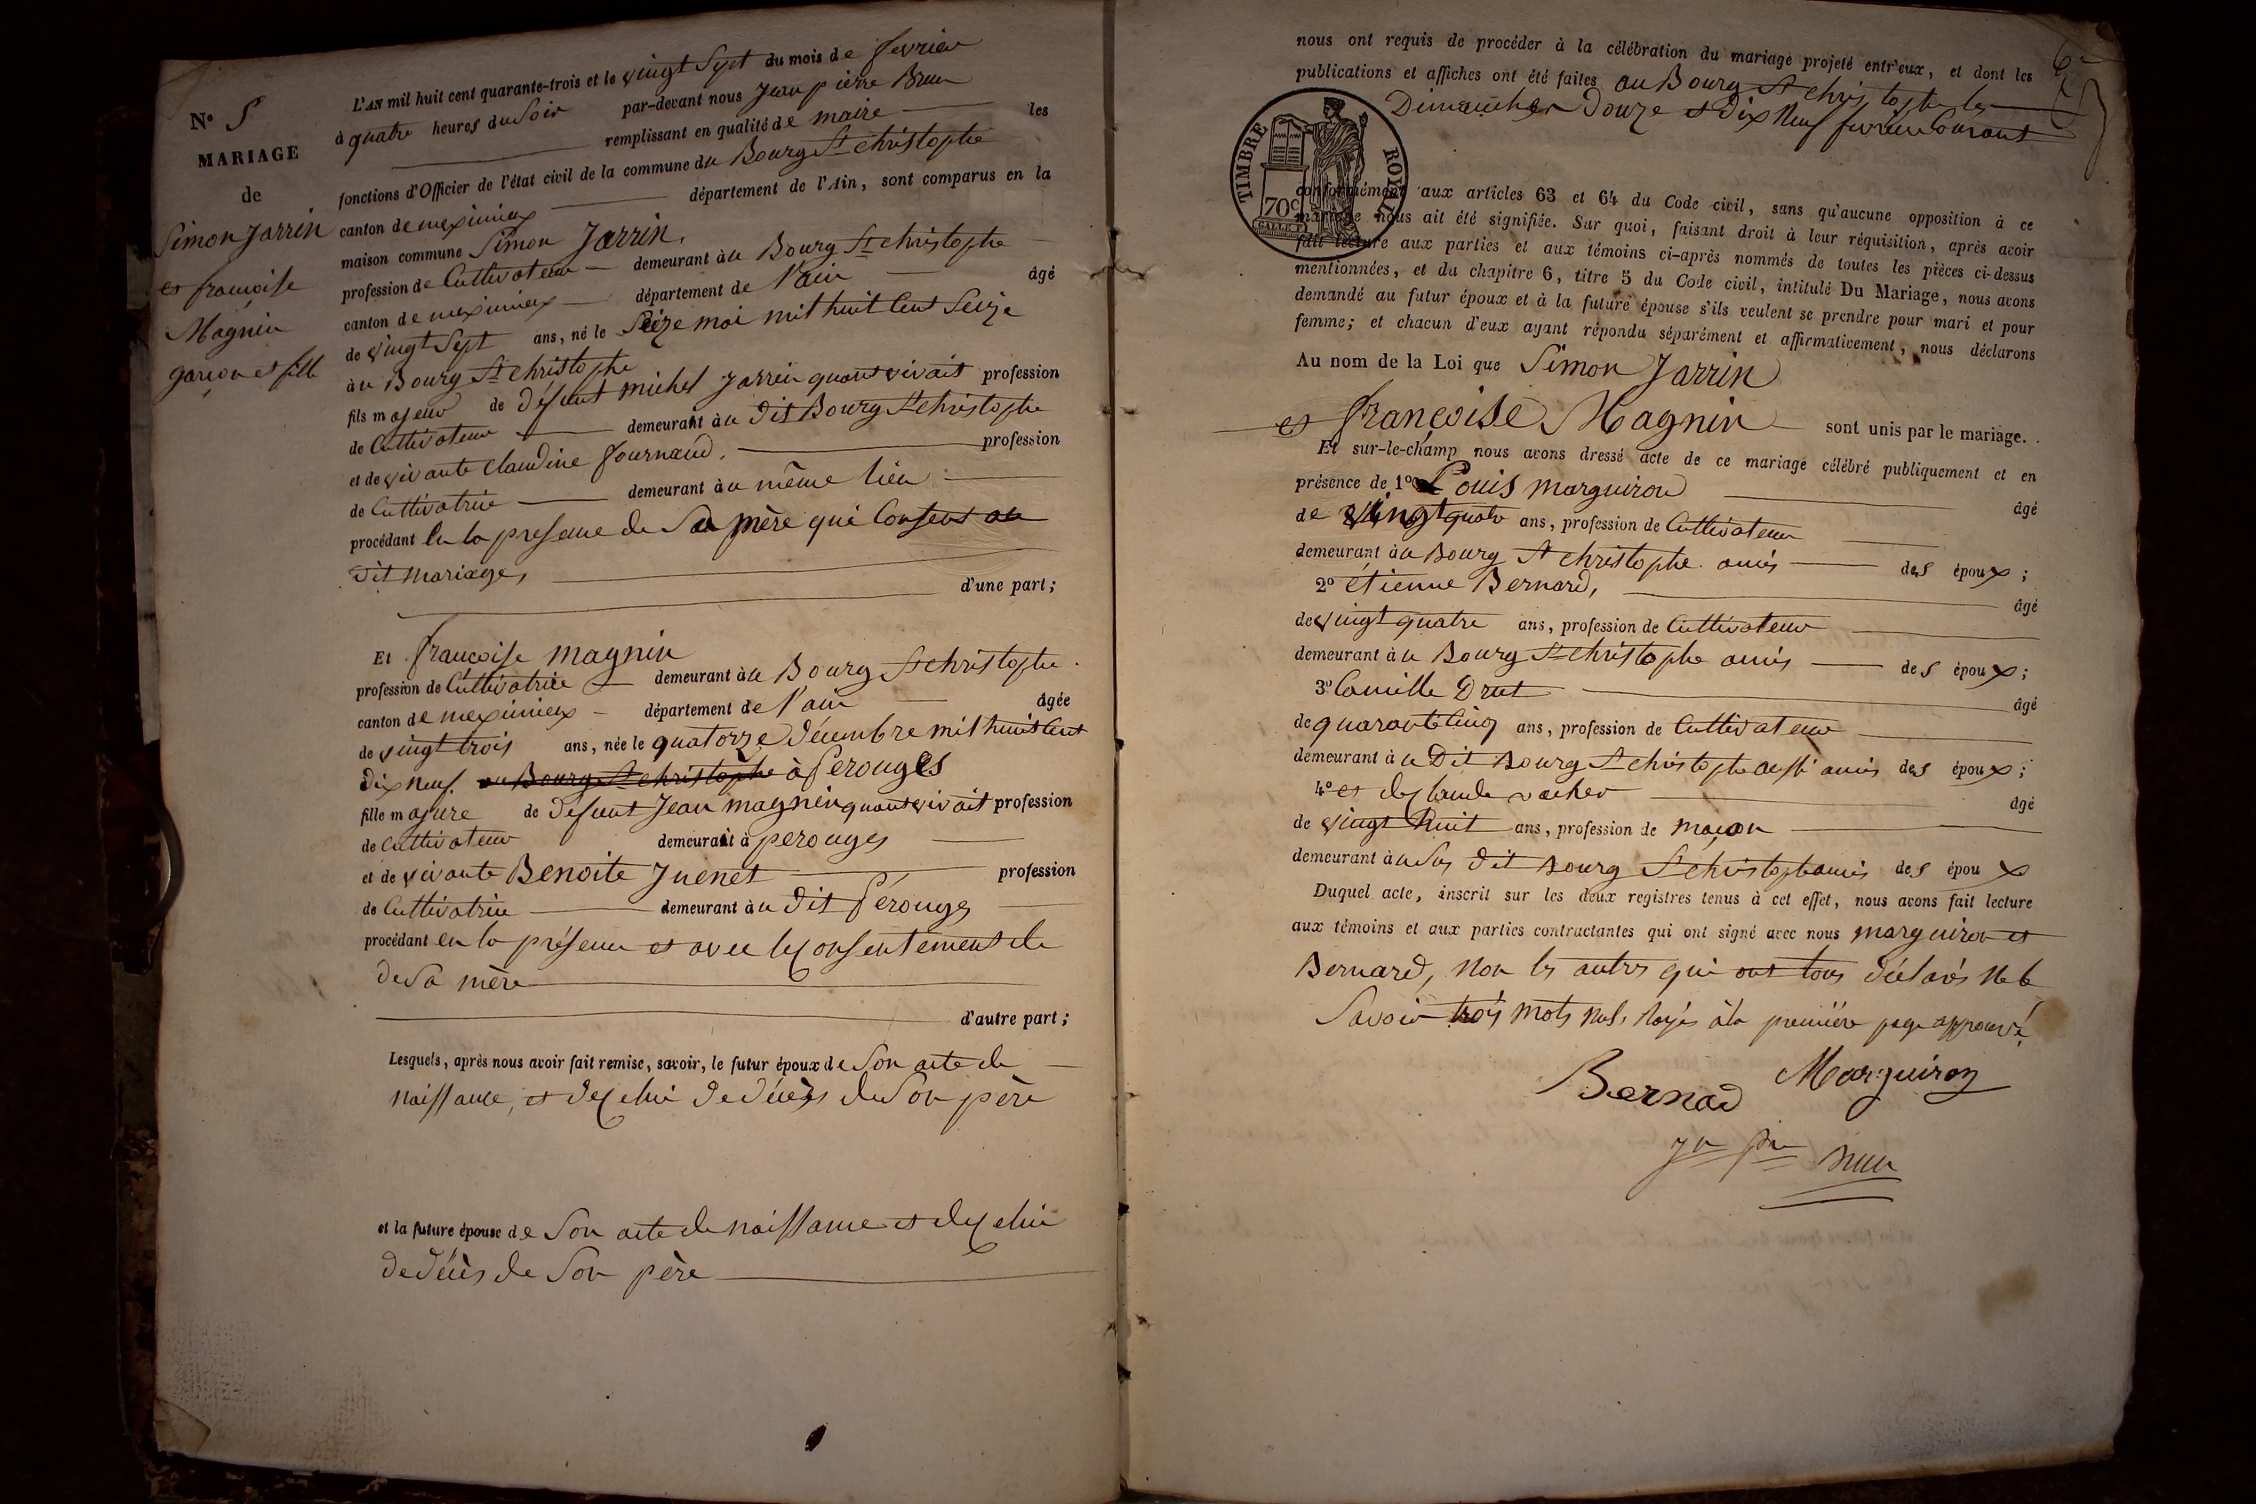 N° 5
MARIAGE
de
Simon Jarrin
et françoise
Magnin
garçon et fille
L'AN mil huit cent quarante-trois et le vingt Sept du mois de fevrier
à quatre heures du Soir par-devant nous Jean pierre Brun
remplissant en qualité de maire les
fonctions d'Officier de l'état civil de la commune du Bourg St christophe
canton de meximieux département de l'Ain, sont comparus en la
maison commune Simon Jarrin,
profession de Cultivateur demeurant à u Bourg St christophe
canton de meximieux département de l'ain âgé
de vingt Sept ans, né le Seize mai mil huit Cent Seize
à u Bourg St christophe
fils majeur de défunt michel Jarrin quant vivait profession
de Cultivateur demeurant à u dit Bourg St christophe
et de vivante claudine fournand, profession
de Cultivatrice demeurant à u même lieu
procédant En la presence de Sa mère qui Consent au
dit mariage,
d'une part;
Et françoise magnin
profession de Cultivatrice demeurant à u Bourg St christophe
canton de meximieux département de l'ain âgée
de vingt trois ans, née le quatorze décembre mil huit Cent
dix neuf au Bourg St christophe à Perouges
fille majure de défunt Jean magnin quant vivait profession
de Cultivateur demeurant à perouges
et de vivante Benoite Juenet profession
de Cultivatrice demeurant à u dit Pérouges
procédant en la présence et avec le Consentement de
de Sa mère
d'autre part;
Lesquels, après nous avoir fait remise, savoir, le futur époux de Son acte de
naissance, et de Celui de décès de Son père
et la future épouse de Son acte de naissance et de Celui
de décès de Son père
nous ont requis de procéder à la célébration du mariage projeté entr'eux, et dont les
publications et affiches ont été faites au Bourg St christophe les
Dimanches Douze et dix Neuf fevrier Courant
TIMBRE ROYAL
70c
conformément aux articles 63 et 64 du Code civil, sans qu'aucune opposition à ce
mariage nous ait été signifiée. Sur quoi, faisant droit à leur réquisition, après avoir
fait lecture aux parties et aux témoins ci-après nommés de toutes les pièces ci-dessus
mentionnées, et du chapitre 6, titre 5 du Code civil, intitulé Du Mariage, nous avons
demandé au futur époux et à la future épouse s'ils veulent se prendre pour mari et pour
femme; et chacun d'eux ayant répondu séparément et affirmativement, nous déclarons
Au nom de la Loi que Simon Jarrin
et françoise Magnin sont unis par le mariage.
Et sur-le-champ nous avons dressé acte de ce mariage célébré publiquement et en
présence de 1° Louis marguiron âgé
de vingt quatr ans, profession de Cultivateur
demeurant à u Bourg St christophe amis des époux;
2° étienne Bernard, âgé
de vingt quatre ans, profession de Cultivateur
demeurant à u Bourg St christophe amis des époux;
3° Camille Drut âgé
de quarante Cinq ans, profession de Cultivateur
demeurant à u Dit Bourg St christophe aussi amis des époux;
4° et de Claude vacher âgé
de vingt huit ans, profession de maçon
demeurant à u Sus dit Bourg St christophe amis des époux
Duquel acte, inscrit sur les deux registres tenus à cet effet, nous avons fait lecture
aux témoins et aux parties contractantes qui ont signé avec nous marguiron et
Bernard, Non les autres qui ont tous déclarés Ne le
Savoir trois mots nuls rayés à la première page approuvé
Bernad Marguiron
Jn Pre Brun